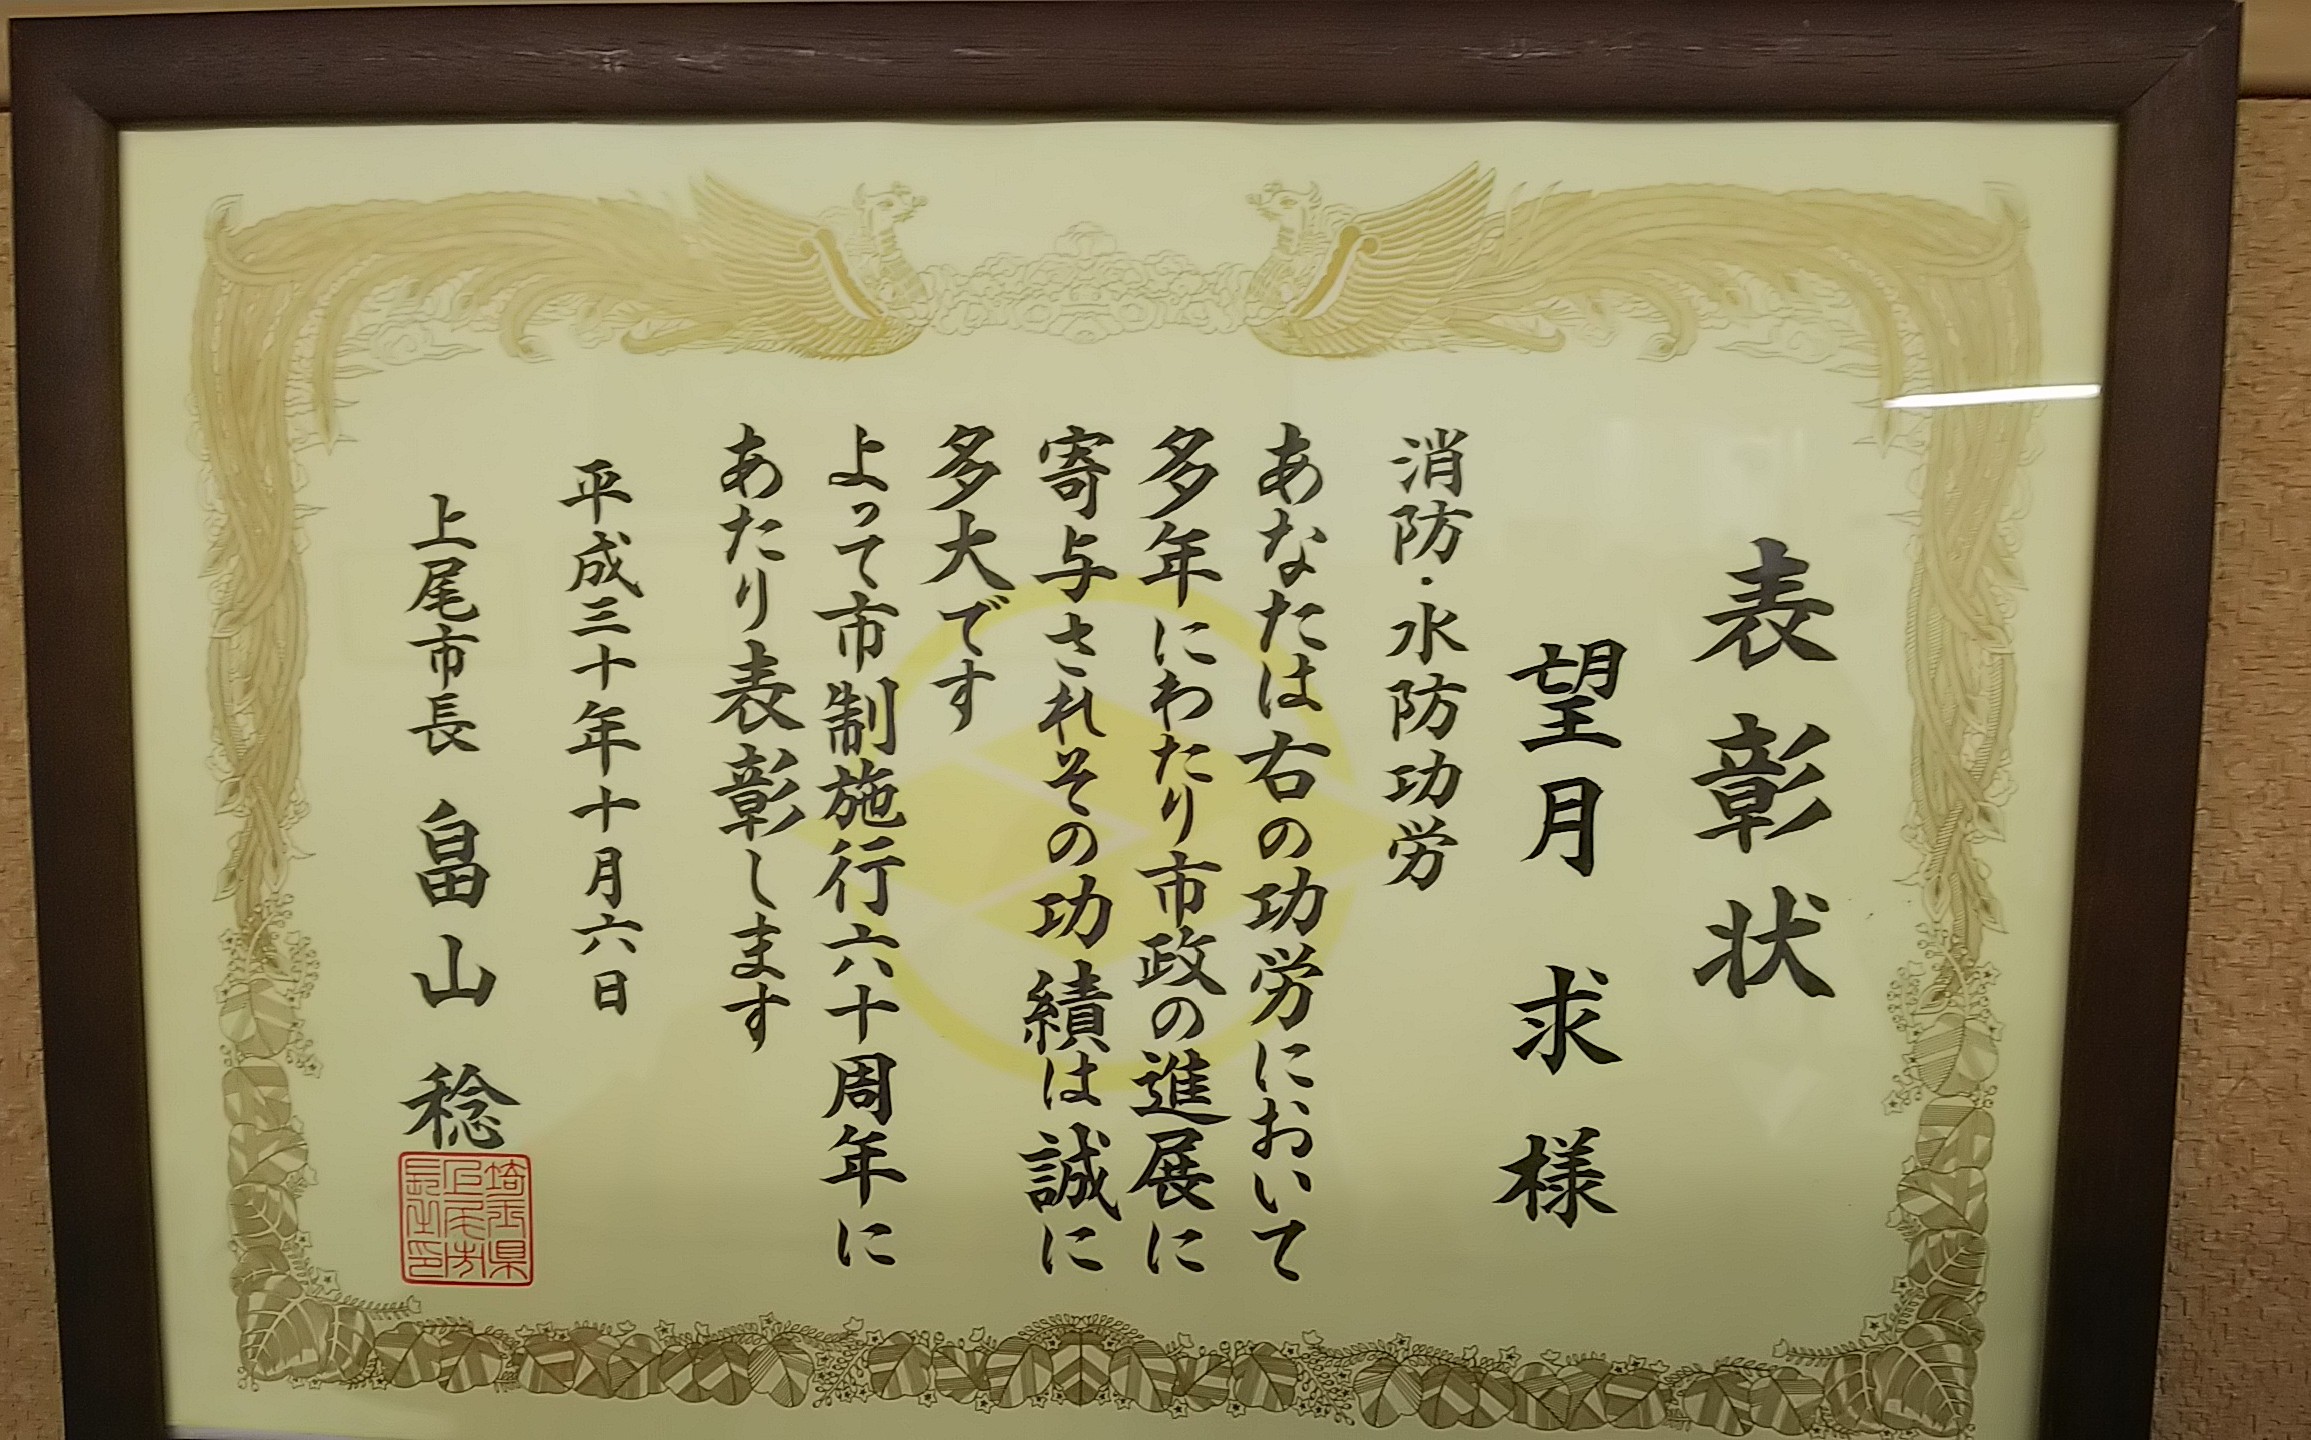 表彰状
望月 求 様
消防・水防功労
あなたは右の功労において
多年にわたり市政の進展に
寄与されその功績は誠に
多大です
よって市制施行六十周年に
あたり表彰します
平成三十年十月六日
上尾市長 畠山 稔
埼玉県
上尾市
長之印